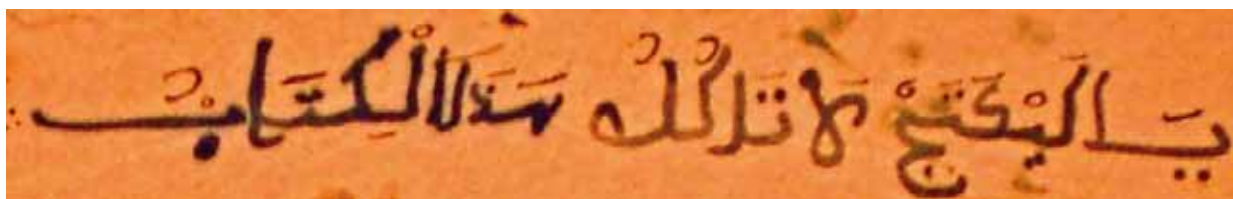 يَا لَيْكَتَجْ لَا تَاكُلُ هَذَا الْكِتَابْ